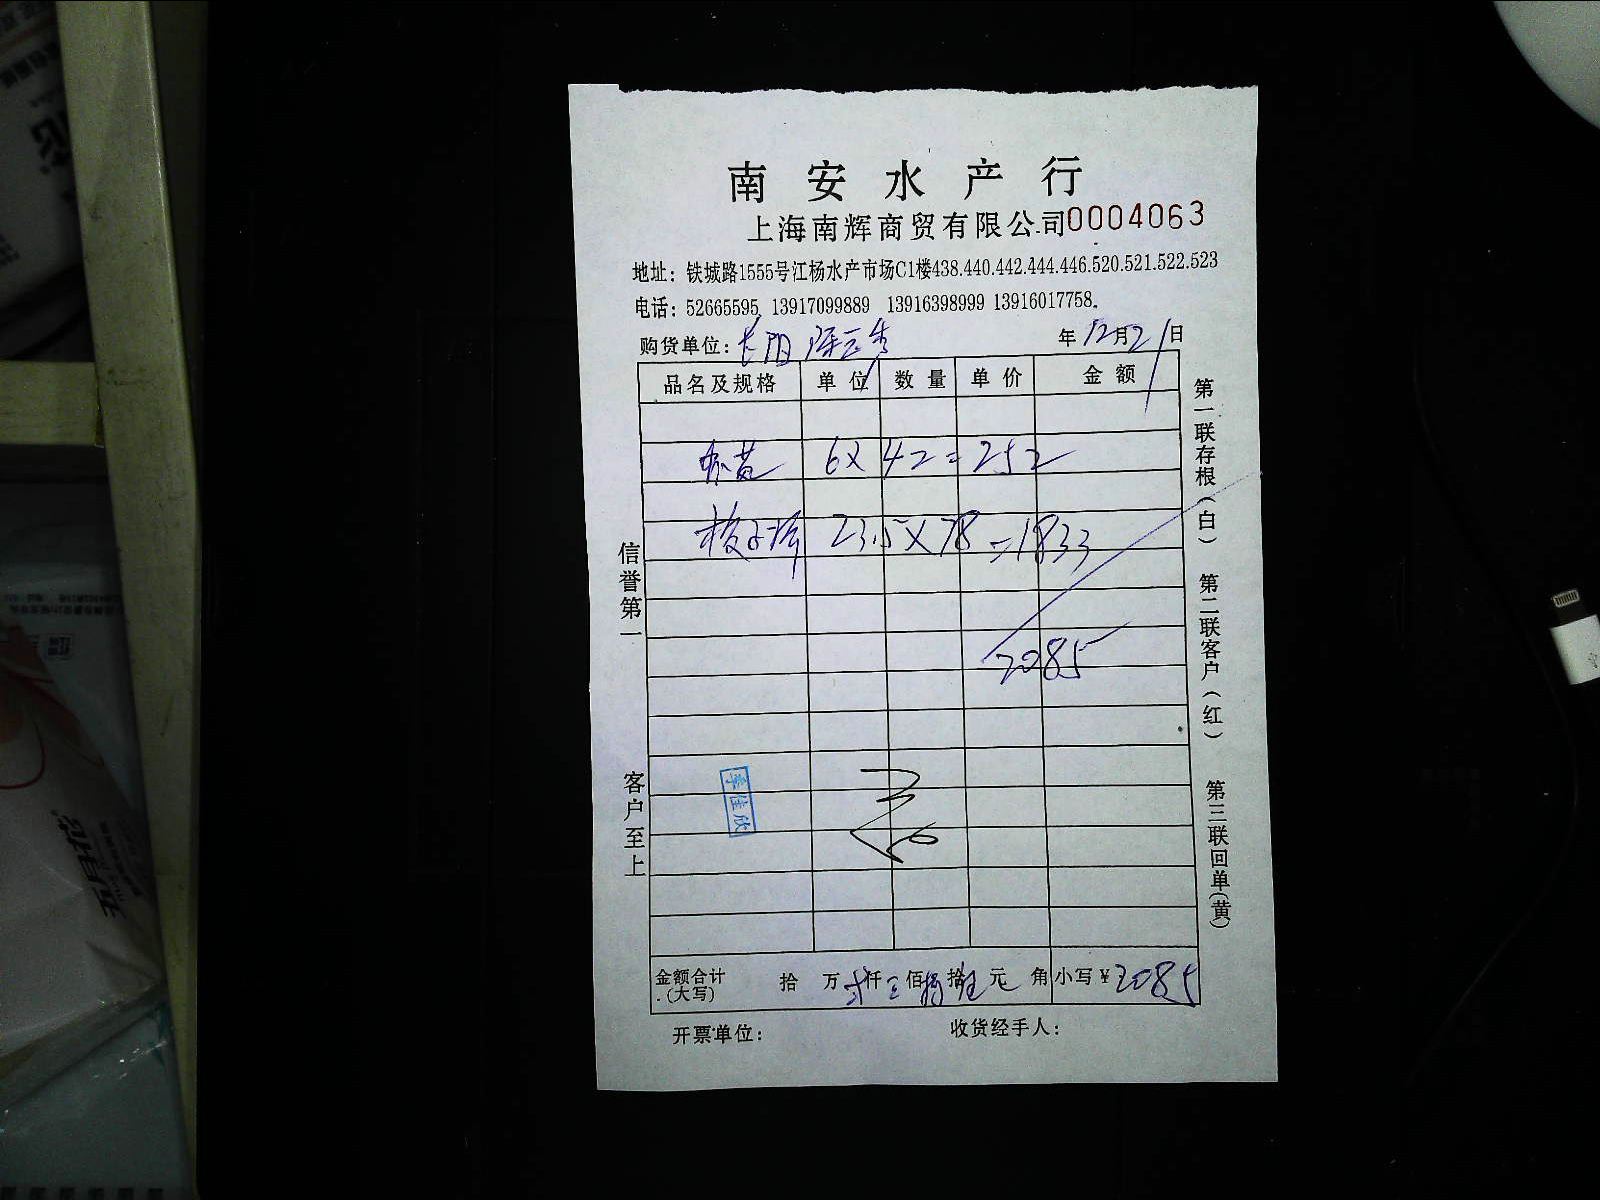 南安水产行
上海南辉商贸有限公司 0004063
地址：铁城路1555号江杨水产市场C1楼438.440.442.444.446.520.521.522.523
电话：52665595 13917099889 13916398999 13916017758.
购货单位：长阳 年12月21日
品名及规格 单位 数量 单价 金额
6X 42=252
梭子蟹 23.5X78=1833
2085
李佳欣
金额合计(大写) 拾 万 贰仟 佰 捌拾 伍元 角 小写¥2085
开票单位： 收货经手人：
信誉第一
客户至上
第一联存根(白)
第二联客户(红)
第三联回单(黄)